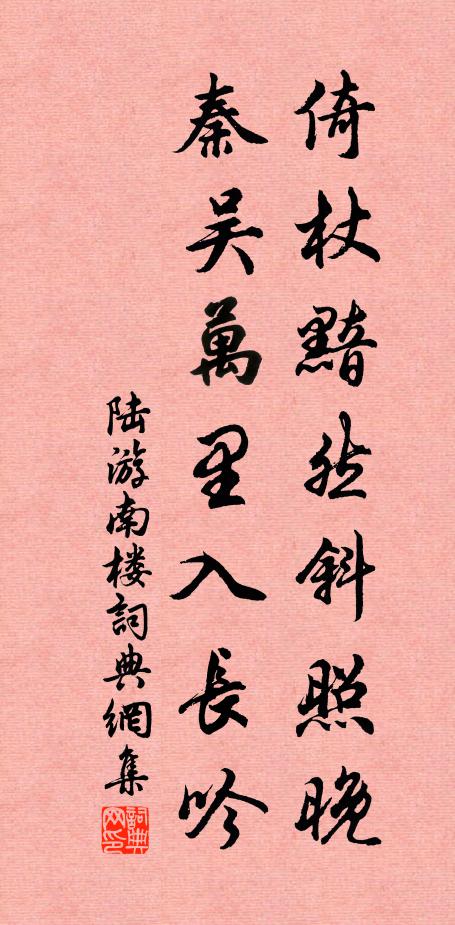 倚杖黯然斜照晚
秦吴萬里入長吟
陆游南楼詞典網集
詞典网印